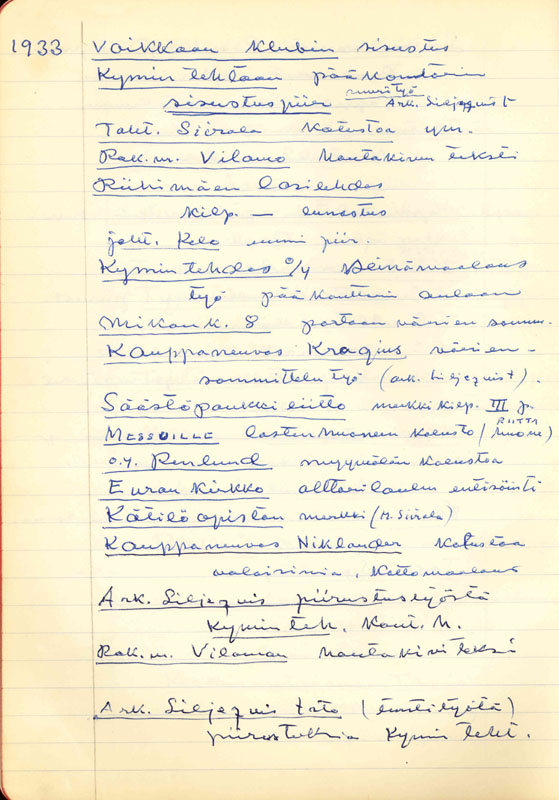 1933 Voikkaan klubin sisustus
Kymin tehtaan pääkonttorin
sisustuspiir muutityö Ark. Siljeqvist
Taht. Siirala kalustoa ym.
Rak.m. Vilamo hautakiven teksti
Riihimäen lasitehdas
kilp. — lunastus
joht. Kelo piir.
Kymintehdas o/y Seinämaalaus
työ pääkonttorin aulaan
Mikonk. 8 portaan värien somm.
Kauppaneuvos Kragius värien-
sommittelutyö (ark. Liljeqvist).
Säästöpankkiliitto merkki kilp. III p.
MESSUILLE lastenhuoneen kalusto (RIITTA huone)
o.y. Renlund myymälän kalustoa
Euran kirkko alttaritaulun entisöinti
Kätilöopiston merkki (M. Siirala)
Kauppaneuvos Niklander kalustoa
valaisimia, kattomaalaus
Ark. Siljeqvis piirustustyöstä
Kymin teh. kont. h.
Rak.m. Vilaman hautakiviteksi
Ark. Siljeqvis (tuntityötä)
piirustuksia Kymin teht.